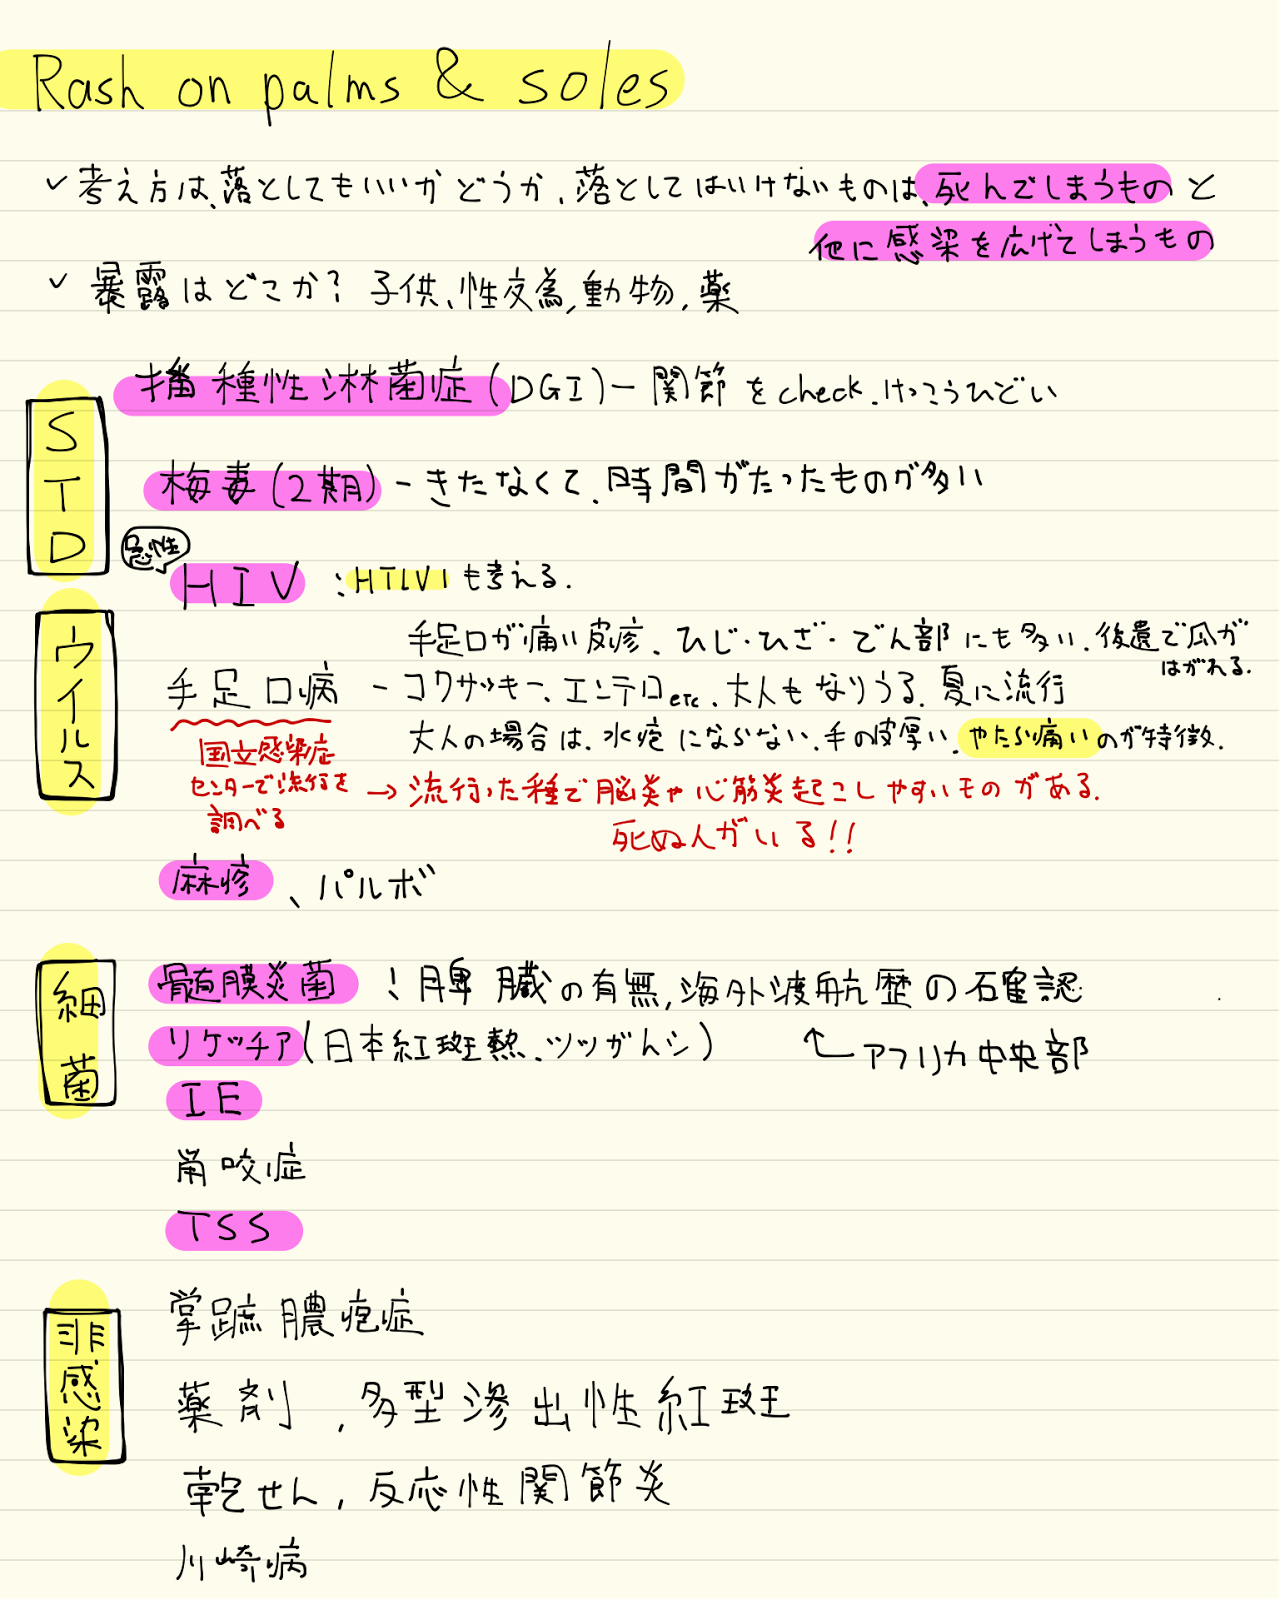 Rash on palms & soles
✓ 考え方は、落としてもいいかどうか、落としてはいけないものは、死んでしまうものと
他に感染を広げてしまうもの
✓ 暴露はどこか? 子供、性交為、動物、薬
STD
播種性淋菌症(DGI)ー関節をcheck、けっこうひどい
梅毒(2期)ーきたなくて、時間がたったものが多い
急性
HIV :HTLV1も考える。
ウイルス
手足口が痛い皮疹、ひじ・ひざ・でん部にも多い、後遺で爪が
はがれる。
手足口病 ーコクサッキー、エンテロetc、大人もなりうる、夏に流行
大人の場合は、水疱にならない、手の皮厚い、やたら痛いのが特徴。
国立感染症
センターで流行を
調べる
→ 流行った種で脳炎や心筋炎起こしやすいものがある。
死ぬ人がいる!!
麻疹、パルボ
細菌
髄膜炎菌 ! 脾臓の有無、海外渡航歴の確認
リケッチア(日本紅斑熱、ツツガムシ) ↖アフリカ中央部
IE
鼠咬症
TSS
非感染
掌蹠膿疱症
薬剤、多型滲出性紅斑
乾せん、反応性関節炎
川崎病